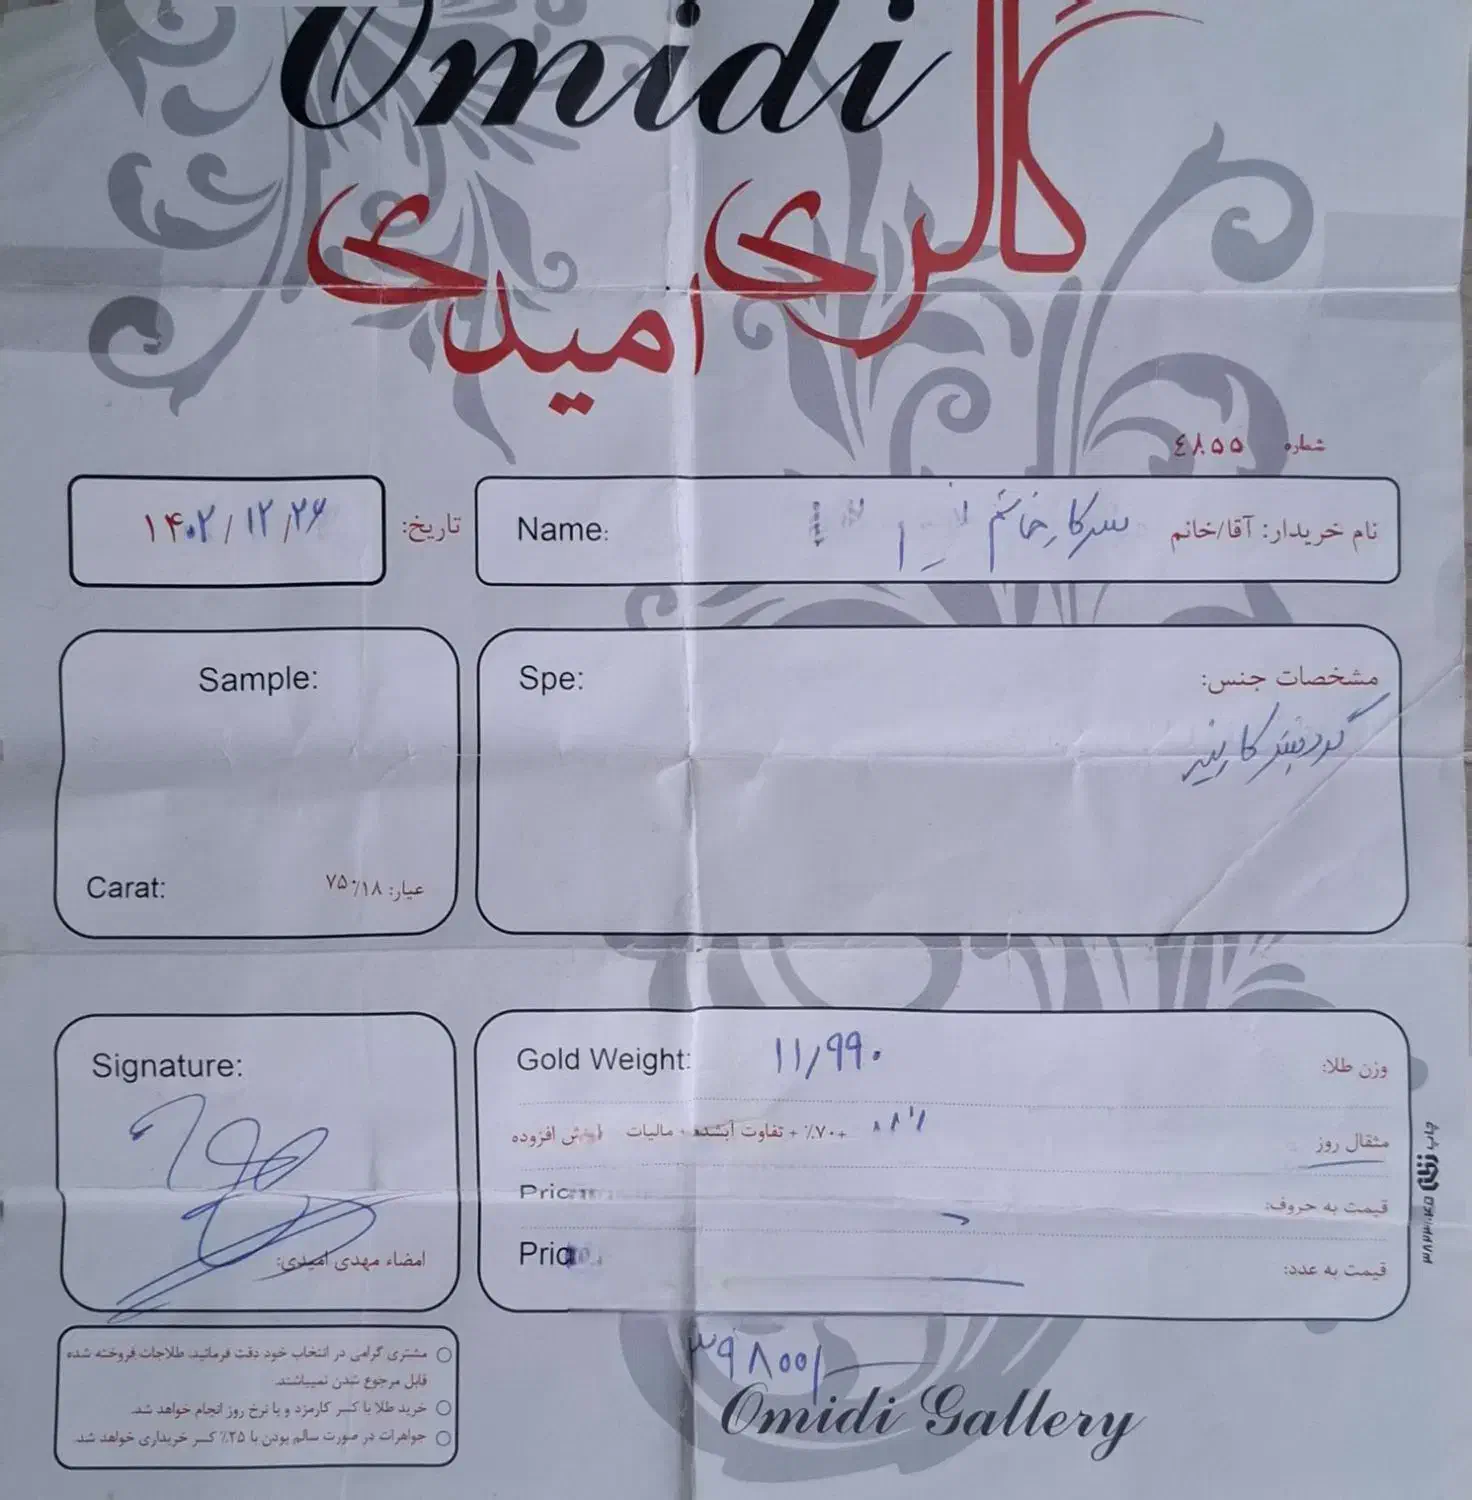 Omidi
گالری امیدی
شماره ٤٨٥٥
نام خریدار: آقا/خانم سرکار خانم Name:
تاریخ: ۱۴۰۲/۱۲/۲۶
مشخصات جنس: Spe:
گردنبند کارتیر
Sample:
عیار: ۷۵۰/۱۸ Carat:
وزن طلا: ۱۱/۹۹۰ Gold Weight:
مثقال روز +۷۰٪ + تفاوت آبشده + مالیات ارزش افزوده
قیمت به حروف:
قیمت به عدد:
۳۹۸۰۰/
Signature:
امضاء مهدی امیدی:
مشتری گرامی در انتخاب خود دقت فرمائید. طلاجات فروخته شده
قابل مرجوع شدن نمیباشند.
خرید طلا با کسر کارمزد و با نرخ روز انجام خواهد شد.
جواهرات در صورت سالم بودن با ۲۵٪ کسر خریداری خواهد شد.
Omidi Gallery
چاپ